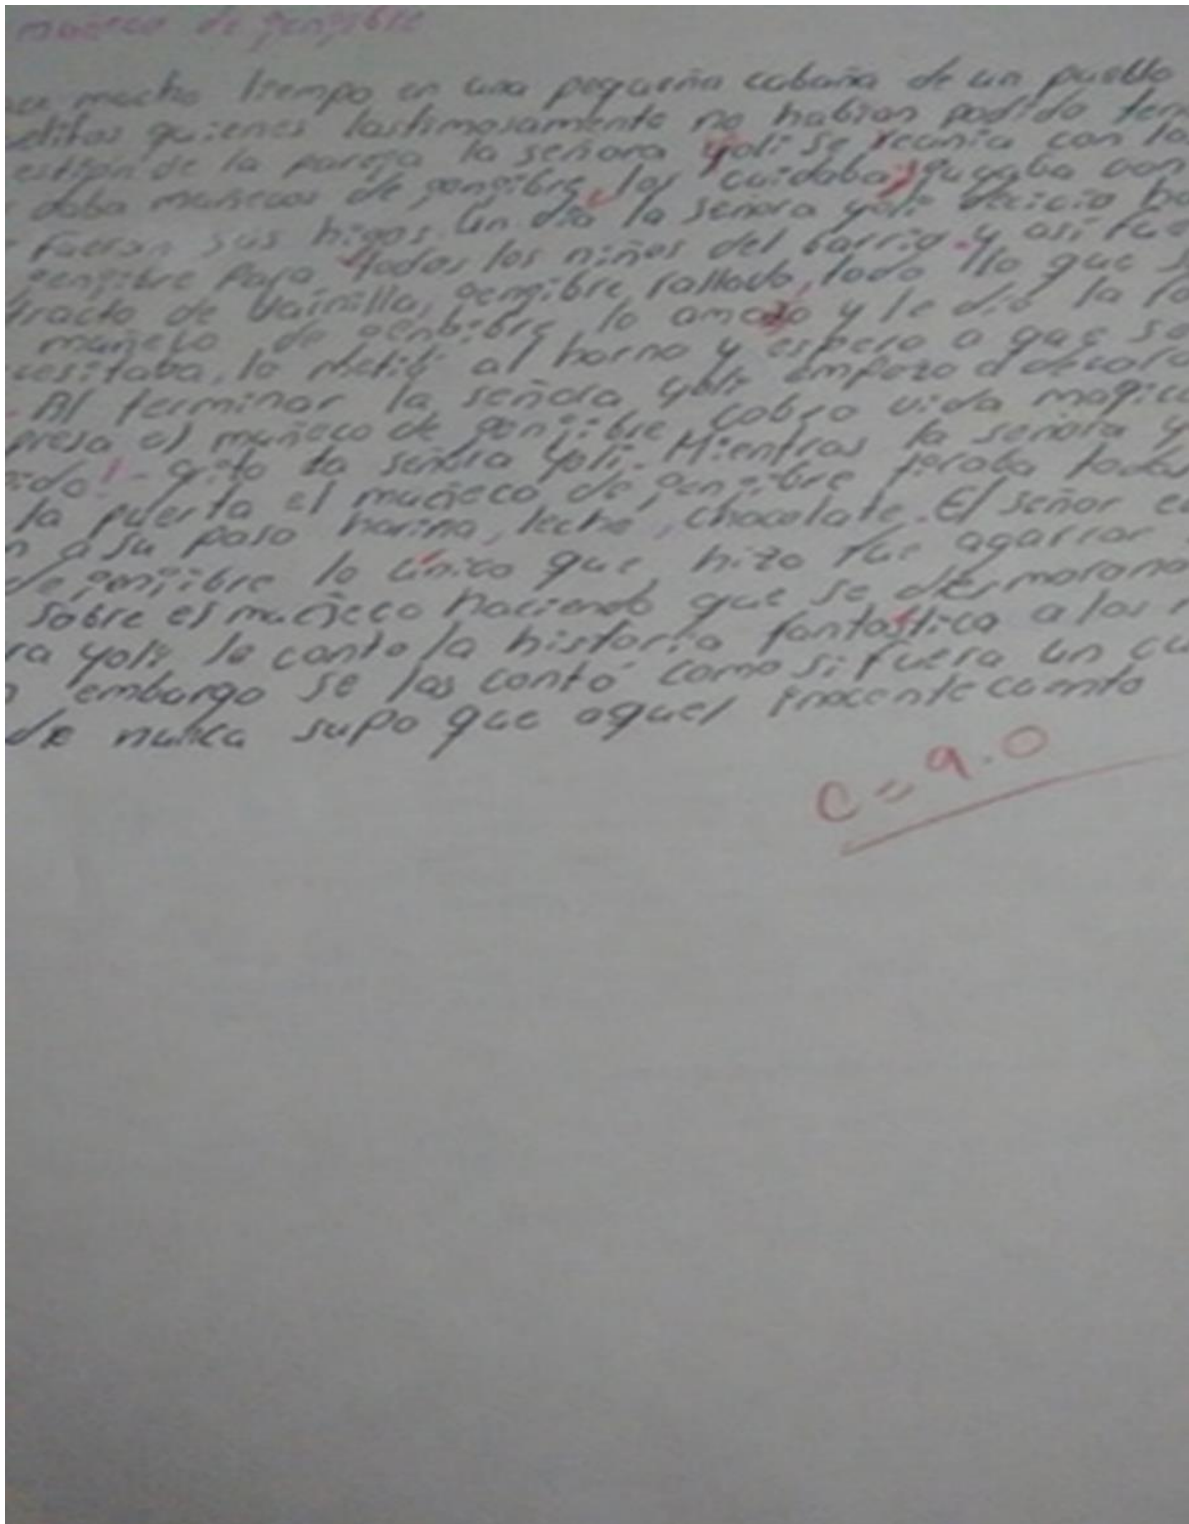 muñeco de gengibre
mucho tiempo en una pequeña cabaña de un pueblo
ditos quienes lastimosamente no habian podido
de la pareja la señora yoli se reunia con
daba muñecos de gengibre, los cuidaba, jugaba con
fueran sus higos. Un dia la señora yoli decicio
gengibre para todos los niños del barrio. y así fue
tracto de vainilla, gengibre rallado, todo llo que
muñeco de genbibre, lo amazo y le dio la
cesitaba, lo metió al horno y espero a que se
Al terminar la señora yoli empezo a decora
presa el muñeco de gengibre cobro vida magica
ido! - grito la señora Yoli. Mientras la señora y
la puerta el muñeco de gengibre tiraba todo
n a su paso harina, leche, chocolate. El señor
de gengibre lo único que hizo fue agarrar
sobre el muñeco haciendo que se desmorona
ra yoli le conto la historia fantástica a los
embargo se las contó como si fuera un cu
de nunca supo que aquel inocente cuento
C = 9.0